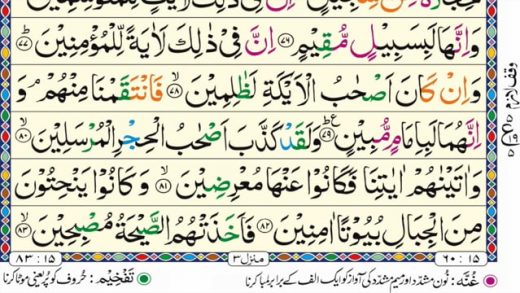 وَاِنَّهَا لَبِسَبِيْلٍ مُّقِيْمٍ ۝۷۶ اِنَّ فِىْ ذٰلِكَ لَاٰيَةً لِّلْمُؤْمِنِيْنَ ۝۷۷ؕ
وَاِنْ كَانَ اَصْحٰبُ الْاَيْكَةِ لَظٰلِمِيْنَ ۝۷۸ۙ فَانْتَقَمْنَا مِنْهُمْ ۘ وَ
اِنَّهُمَا لَبِاِمَامٍ مُّبِيْنٍ ۝۷۹ؕ وَلَقَدْ كَذَّبَ اَصْحٰبُ الْحِجْرِ الْمُرْسَلِيْنَ ۝۸۰ۙ
وَاٰتَيْنٰهُمْ اٰيٰتِنَا فَكَانُوْا عَنْهَا مُعْرِضِيْنَ ۝۸۱ۙ وَكَانُوْا يَنْحِتُوْنَ
مِنَ الْجِبَالِ بُيُوْتًا اٰمِنِيْنَ ۝۸۲ فَاَخَذَتْهُمُ الصَّيْحَةُ مُصْبِحِيْنَ ۝۸۳ۙ
۶۰ : ۱۵
منزل ۳
۸۳ : ۱۵
غُنَّه: نون مشدد اور میم مشدد کی آواز کو ایک الف کے برابر لمبا کرنا
تَفْخِيْم: حروف کو پُر یعنی موٹا کرنا